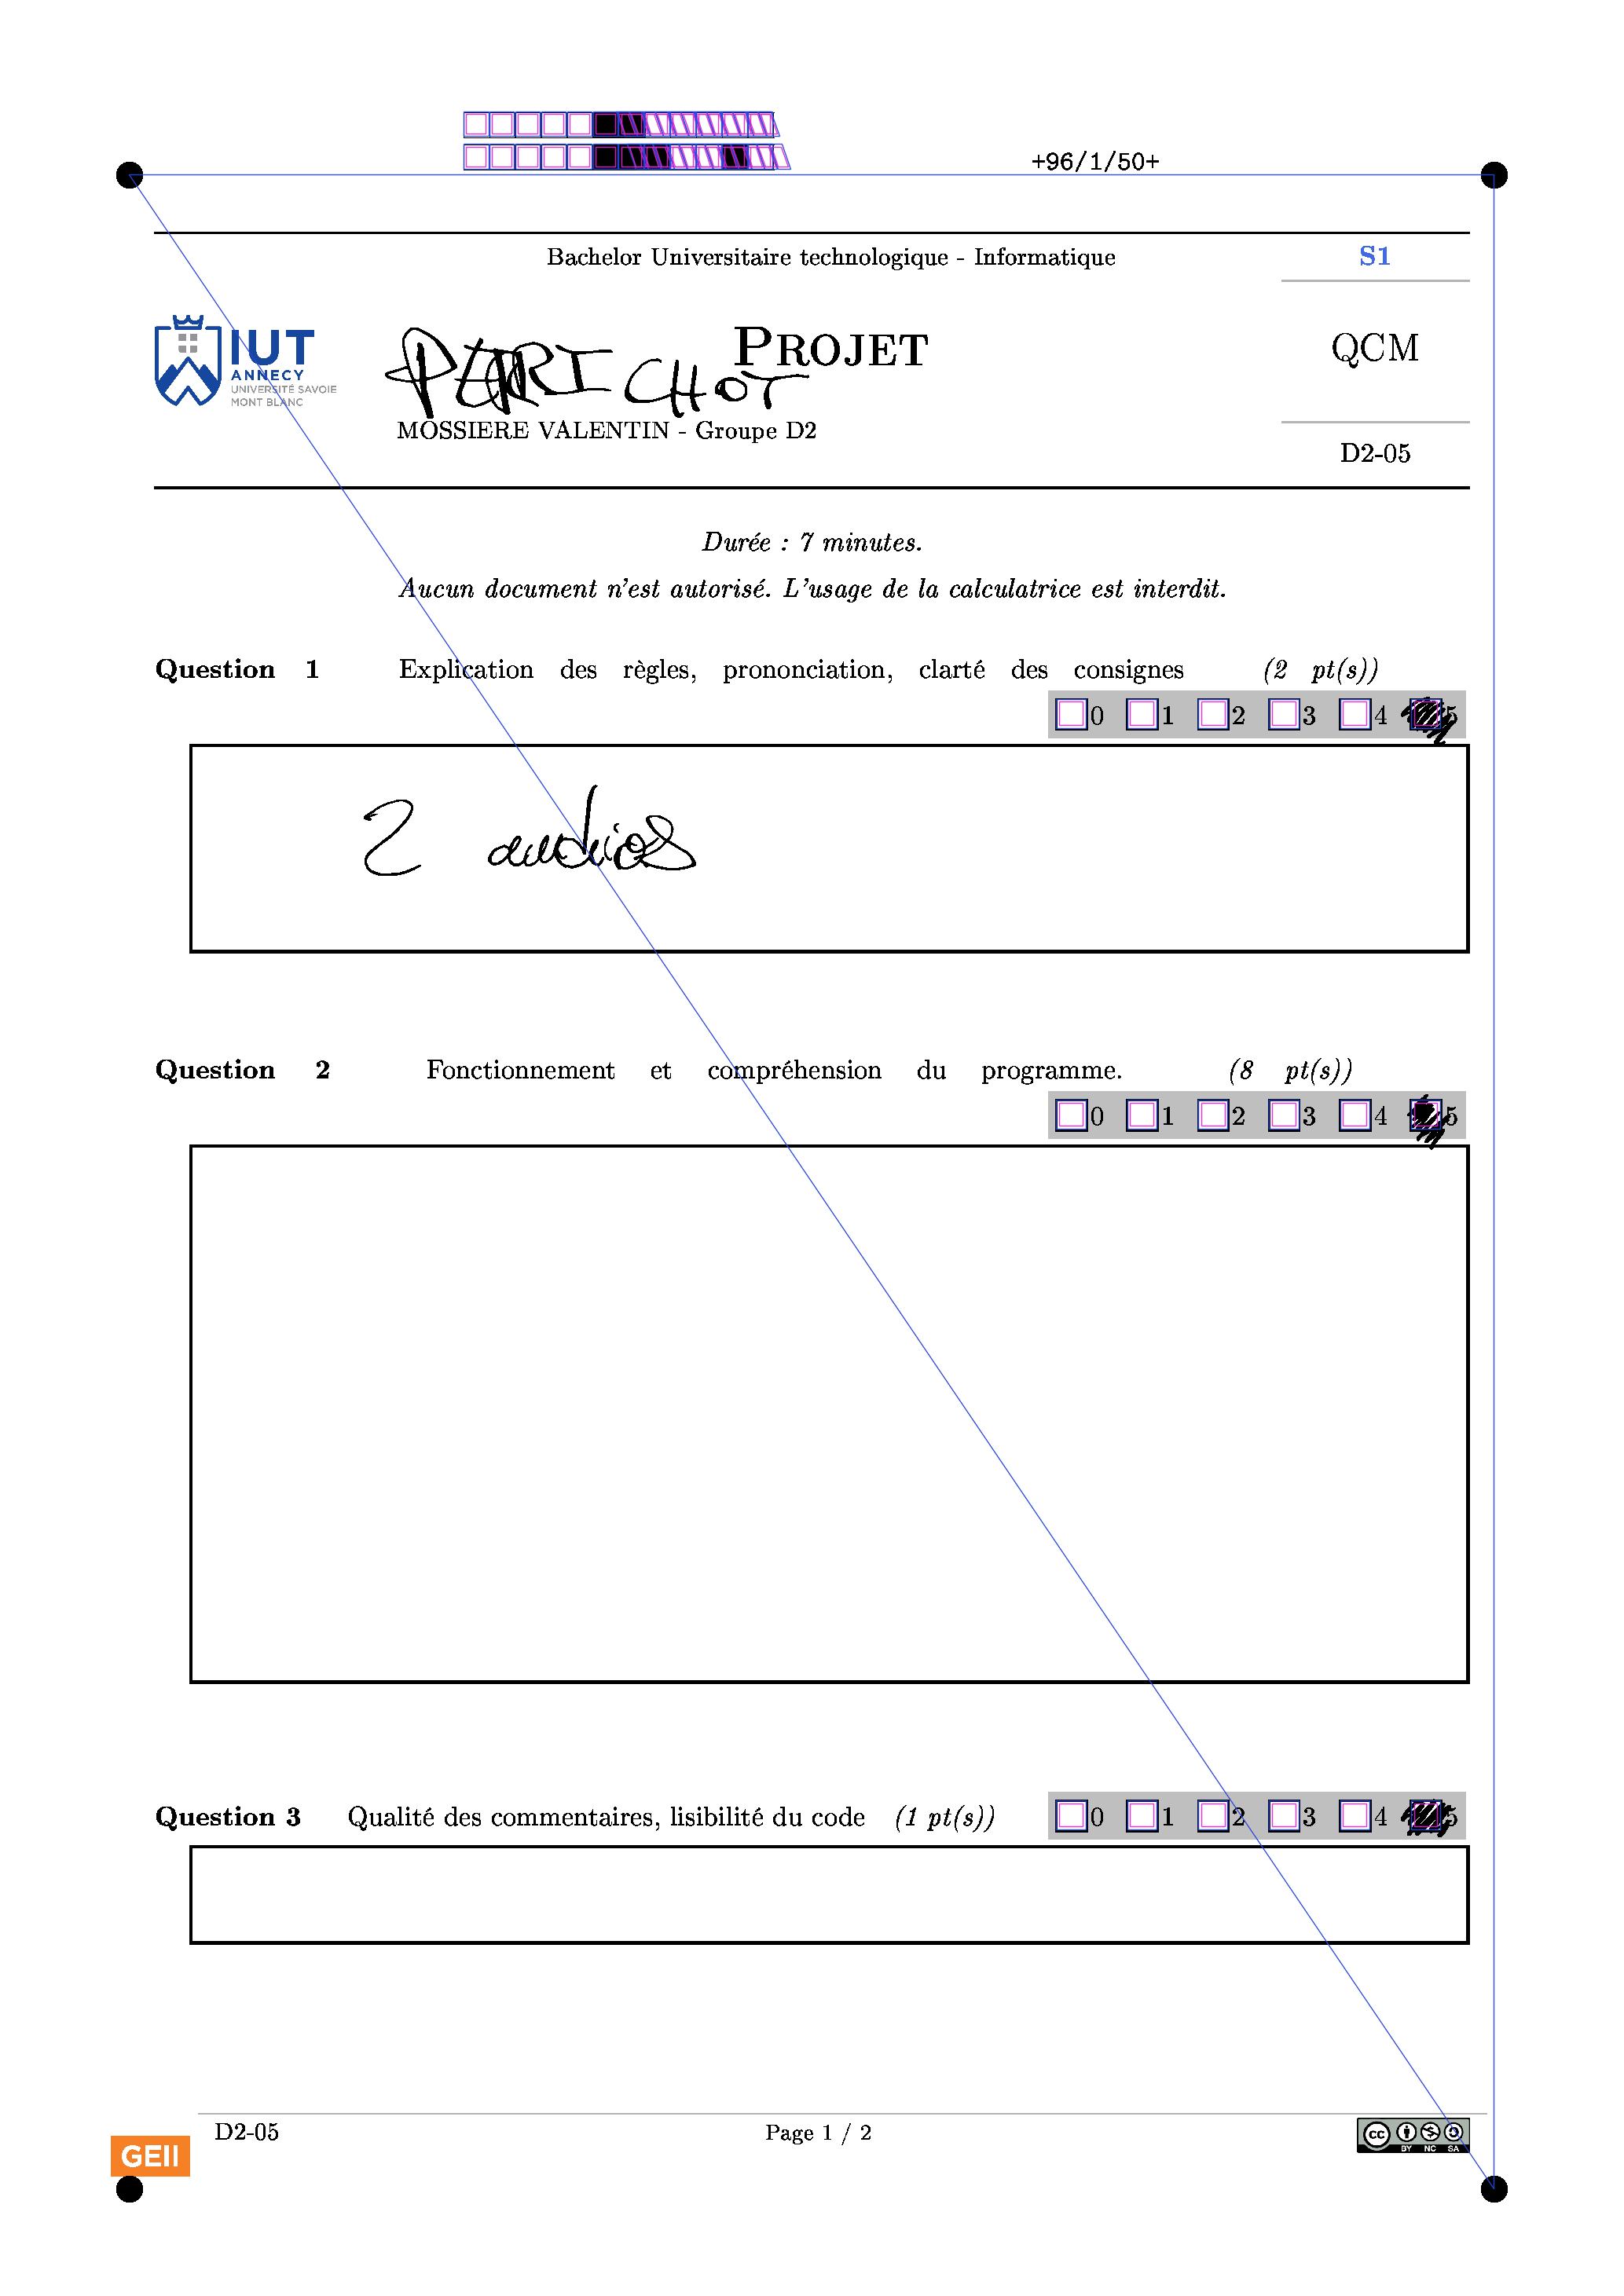 +96/1/50+
Bachelor Universitaire technologique - Informatique
S1
IUT
ANNECY
UNIVERSITÉ SAVOIE
MONT BLANC
PROJET
QCM
CHOT
MOSSIERE VALENTIN - Groupe D2
D2-05
Durée : 7 minutes.
Aucun document n'est autorisé. L'usage de la calculatrice est interdit.
Question 1 Explication des règles, prononciation, clarté des consignes (2 pt(s))
0 1 2 3 4 5
2 audios
Question 2 Fonctionnement et compréhension du programme. (8 pt(s))
0 1 2 3 4 5
Question 3 Qualité des commentaires, lisibilité du code (1 pt(s))
0 1 2 3 4 5
D2-05
Page 1 / 2
GEII
cc BY NC SA